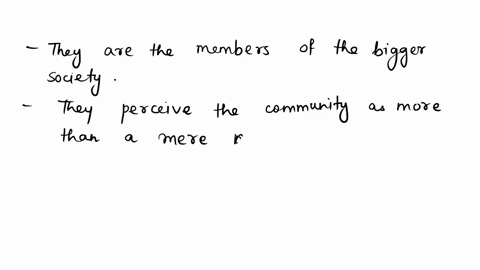 - They are the members of the bigger
society.
- They perceive the community as more
than a mere